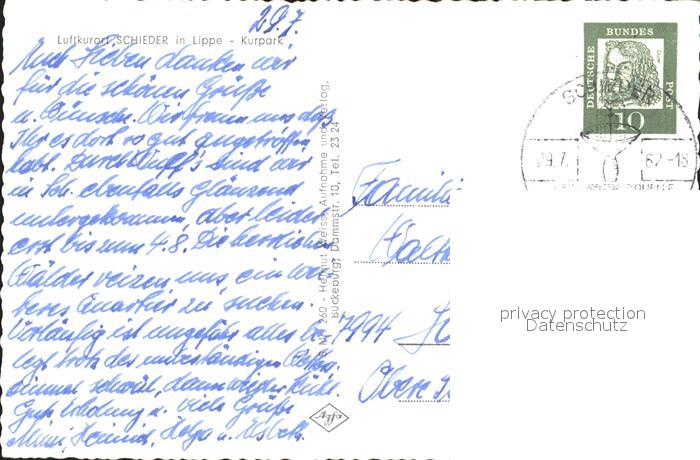 29.7.
Luftkurort SCHIEDER in Lippe - Kurpark
Euch Lieben danken wir
für die schönen Grüße
u. Wünsche. Wir freuen uns, daß
Ihr es dort so gut angetroffen
habt. Durch sind wir
in Sch. ebenfalls glänzend
untergekommen, aber leider
erst bis zum 4.8. Die herrlichen
Wälder reizen uns, ein wei-
teres Quartier zu suchen.
Vorläufig ist ungefähr alles be-
legt trotz des unbeständigen Wetters.
Einmal schwül, dann wieder kühl.
Gute Erholung u. viele Grüße
Heinrich, Helga u.
260 - Helmut Weiss, Aufnahme und Verlag,
Bückeburg, Dammstr. 10, Tel. 23 24
Famili
7994
Obere
DEUTSCHE BUNDESPOST
10
SCHIEDER
29.7. 62-18
privacy protection
Datenschutz